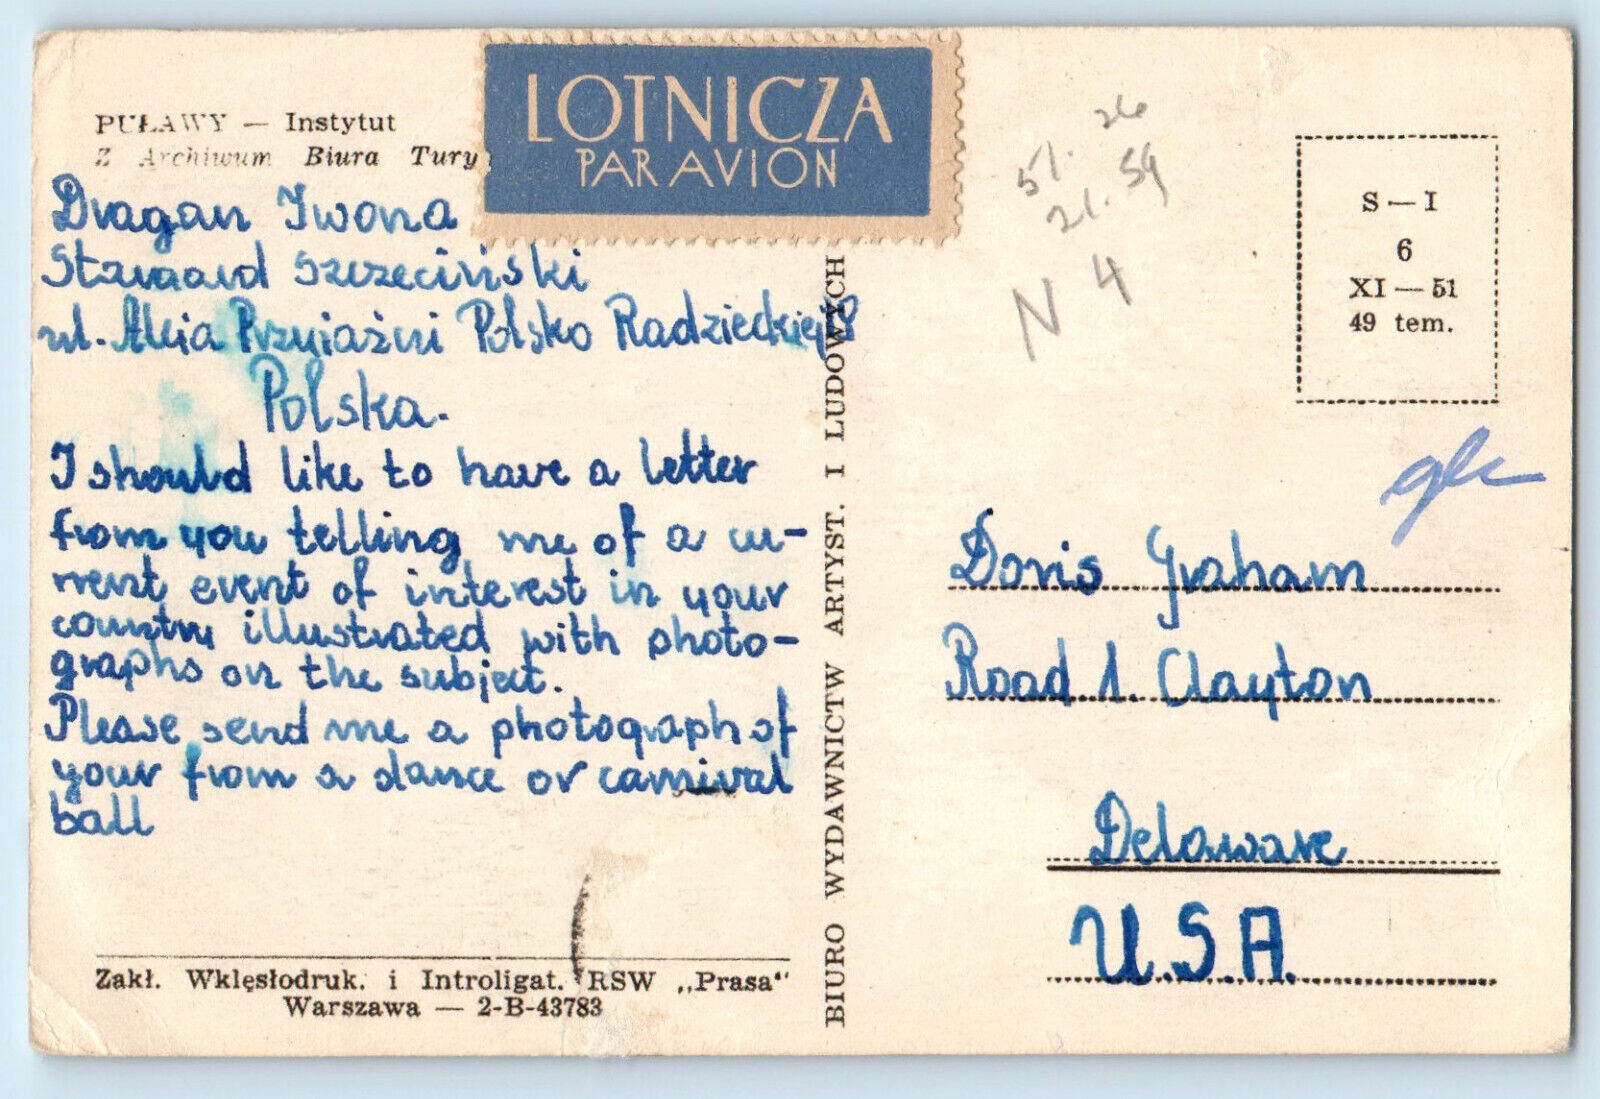 PUŁAWY — Instytut
Z Archiwum Biura Tury
LOTNICZA
PAR AVION
Dragan Iwona
Stargard Szczeciński
ul. Aleja Przyjaźni Polsko Radzieckiej
Polska.
I should like to have a letter
from you telling me of a cu-
rrent event of interest in your
country illustrated with photo-
graphs on the subject.
Please send me a photograph of
your from a dance or carnival
ball
Zakł. Wklęsłodruk. i Introligat. RSW „Prasa"
Warszawa — 2-B-43783
BIURO WYDAWNICTW ARTYST. I LUDOWYCH
26
51. 54
21.
N 4
S — I
6
XI — 51
49 tem.
Doris Graham
Road 1. Clayton
Delaware
U.S.A.